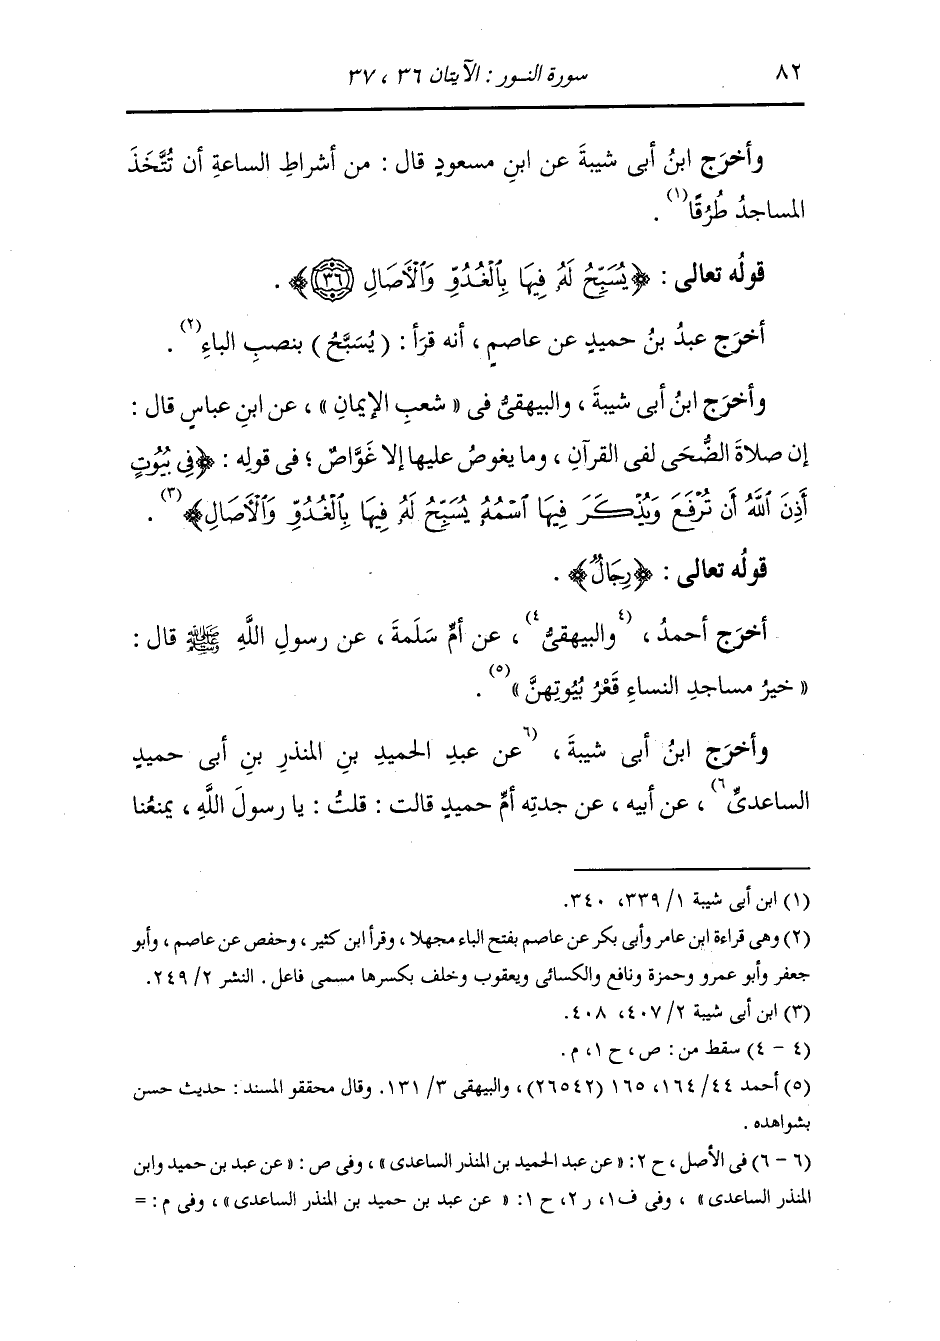 ٨٢ سورة النـور : الآيتان ٣٦ ، ٣٧
وأخرَج ابنُ أبى شيبةَ عن ابنِ مسعودٍ قال : من أشراطِ الساعةِ أن تُتَّخَذَ
المساجدُ طُرُقًا(١) .
قولُه تعالى : ﴿يُسَبِّحُ لَهُۥ فِيهَا بِٱلْغُدُوِّ وَٱلْأٓصَالِ ٣٦﴾ .
أخرَج عبدُ بنُ حميدٍ عن عاصمٍ ، أنه قرَأ : ( يُسَبَّحُ ) بنصبِ الباءِ(٢) .
وأخرَج ابنُ أبى شيبةَ ، والبيهقىُّ فى « شعبِ الإيمانِ » ، عن ابنِ عباسٍ قال :
إن صلاةَ الضُّحَى لفى القرآنِ ، وما يغوصُ عليها إلا غَوَّاصٌ ؛ فى قولِه : ﴿فِى بُيُوتٍ
أَذِنَ ٱللَّهُ أَن تُرْفَعَ وَيُذْكَرَ فِيهَا ٱسْمُهُۥ يُسَبِّحُ لَهُۥ فِيهَا بِٱلْغُدُوِّ وَٱلْأٓصَالِ﴾(٣) .
قولُه تعالى : ﴿رِجَالٌ﴾ .
أخرَج أحمدُ ، (٤والبيهقىُّ٤) ، عن أمِّ سَلَمةَ ، عن رسولِ اللَّهِ ﷺ قال :
« خيرُ مساجدِ النساءِ قَعْرُ بُيُوتِهنَّ »(٥) .
وأخرَج ابنُ أبى شيبةَ ، (٦عن عبدِ الحميدِ بنِ المنذرِ بنِ أبى حميدٍ
الساعدىِّ٦) ، عن أبيه ، عن جدتِه أمِّ حميدٍ قالت : قلتُ : يا رسولَ اللَّهِ ، يمنعُنا
(١) ابن أبى شيبة ١/ ٣٣٩، ٣٤٠.
(٢) وهى قراءة ابن عامر وأبى بكر عن عاصم بفتح الباء مجهلا ، وقرأ ابن كثير ، وحفص عن عاصم ، وأبو
جعفر وأبو عمرو وحمزة ونافع والكسائى ويعقوب وخلف بكسرها مسمى فاعل . النشر ٢/ ٢٤٩.
(٣) ابن أبى شيبة ٢/ ٤٠٧، ٤٠٨.
(٤ - ٤) سقط من : ص ، ح ١ ، م .
(٥) أحمد ٤٤/ ١٦٤، ١٦٥ (٢٦٥٤٢) ، والبيهقى ٣/ ١٣١. وقال محققو المسند : حديث حسن
بشواهده .
(٦ - ٦) فى الأصل ، ح ٢ : « عن عبد الحميد بن المنذر الساعدى » ، وفى ص : « عن عبد بن حميد وابن
المنذر الساعدى » ، وفى ف١، ر ٢، ح ١: « عن عبد بن حميد بن المنذر الساعدى » ، وفى م : =